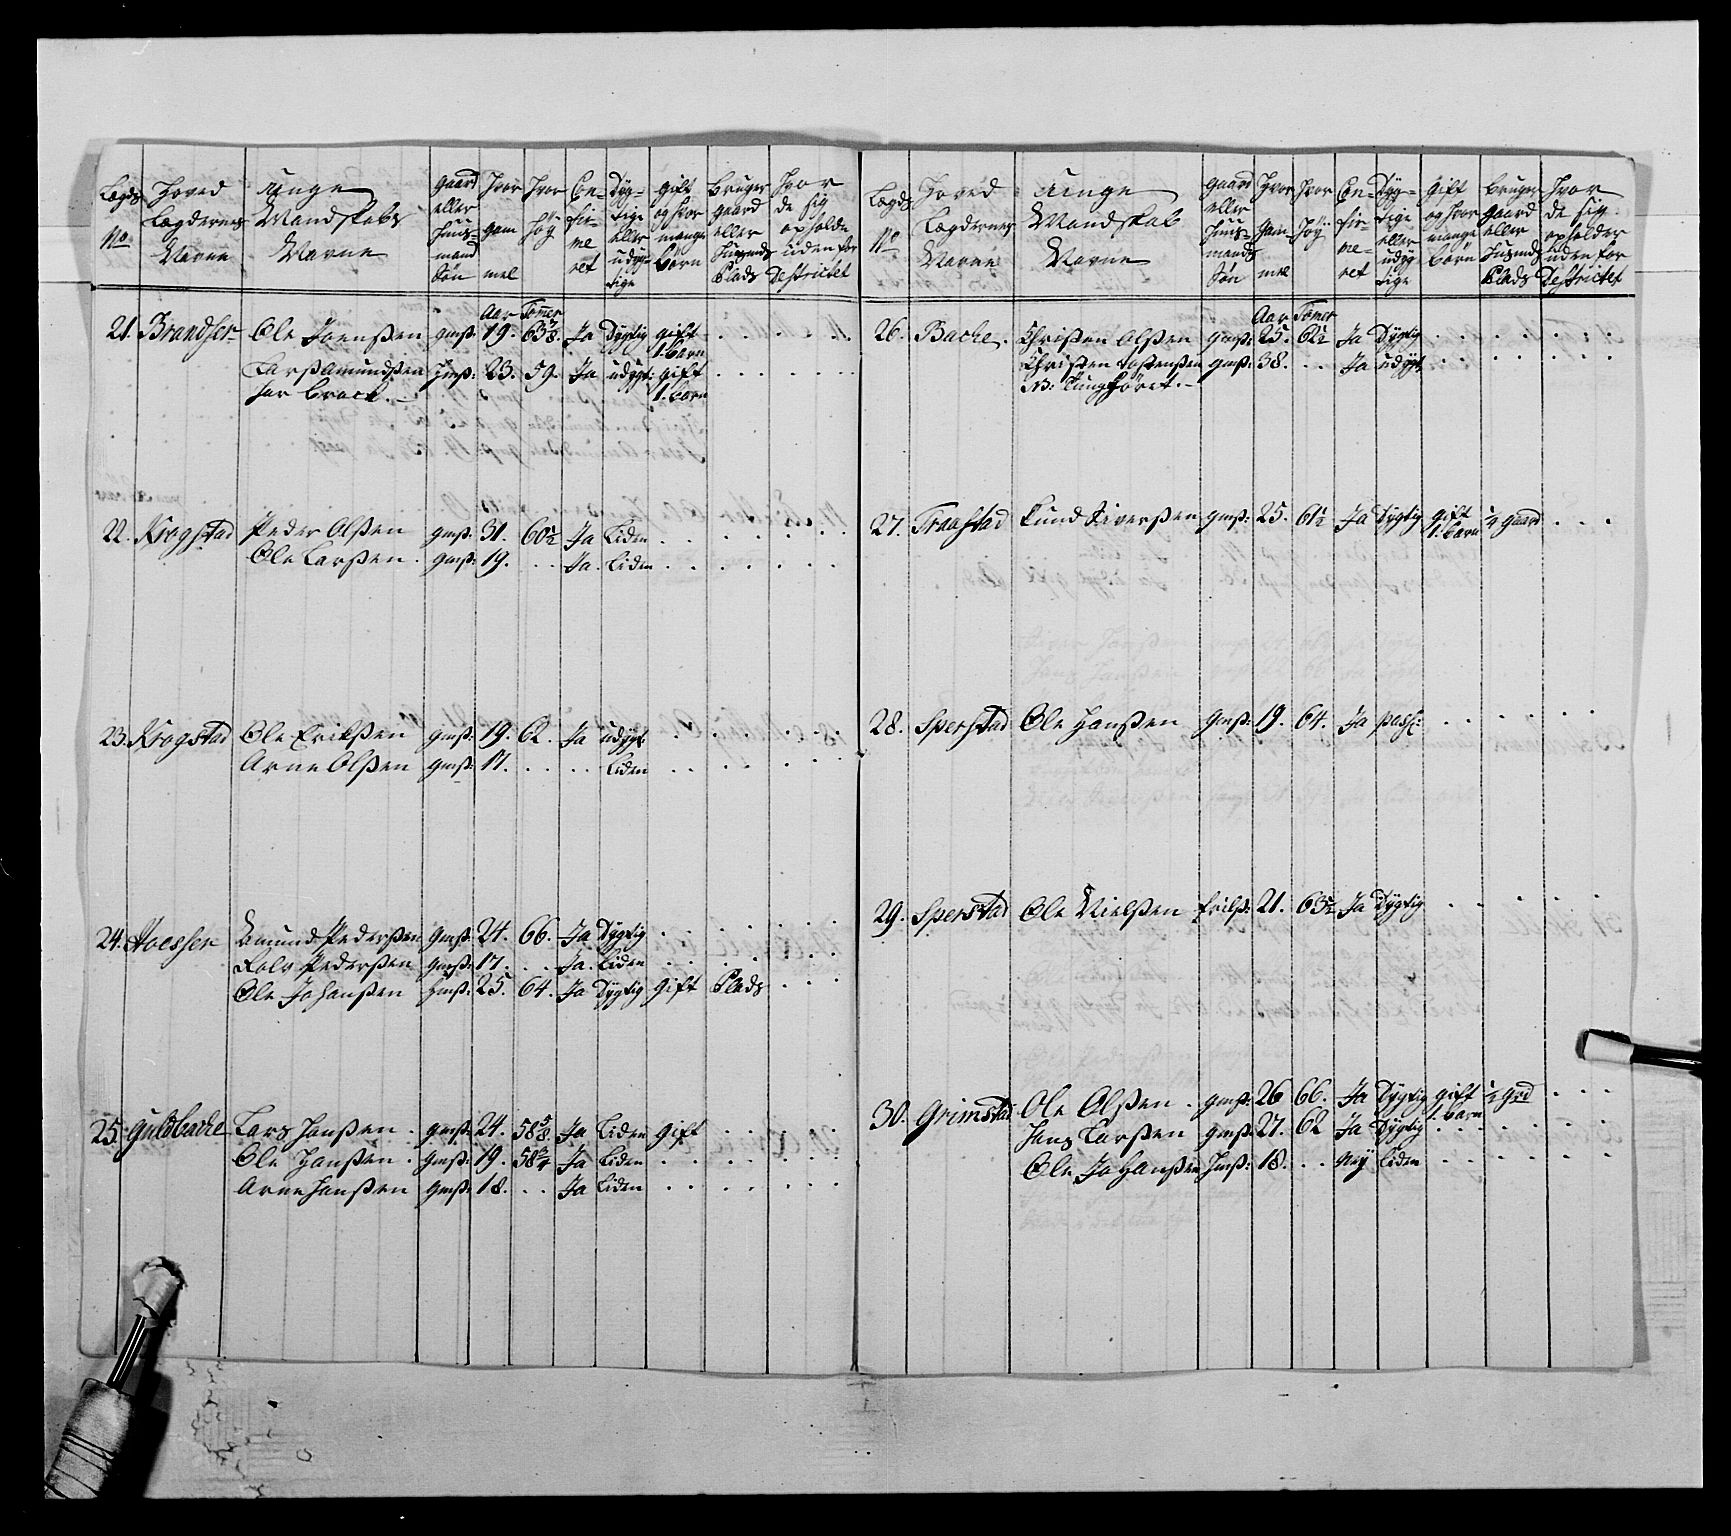 Lægds No Hoved Lægdernes Navne Unge Mandskabs Navne Gaard eller Huusmand Søn Hvor gammel Hvor høy Confirmeret Dygtige eller udygtige Gift og hvor mange Børn Bruger gaard eller Husmands Plads Hvor de sig opholde uden for Destrictet
Aar Tommer
21. Brandser Ole Joensen gmß: 19. 63 7/8 Ja Dygtig gift 1. barn
Lars Amundsen hmß: 23. 59. Ja udygt: gift 1. barn
har Brock.
22. Krogstad Peder Olßen gmß: 31. 60 1/2 Ja Liden
Ole Larßen gmß: 19. Ja. Liden
23. Krogstad Ole Erikßen gmß: 19. 62. Ja udygt:
Arne Olßen gmß: 17. Liden
24. Hoessen Amund Pederßen gmß: 24. 66. Ja Dygtig
Rolv Pederßen gmß: 17. Ja. Liden
Ole Johanßen hmß: 25. 64. Ja Dygtig gift Plads
25. Guldbache Lars Hanßen gmß: 24. 58 5/8 Ja Liden gift
Ole Hanßen gmß: 19. 58 3/4 Ja Liden
Arne Hanßen gmß: 18. Ja Liden
Lægds No Hoved Lægdernes Navne Unge Mandskab Navne Gaard eller Huusmands Søn Hvor Gammel Hvor Høy Confirmeret Dygtige eller udygtige Gift og hvor mange børn Bruger Gaard eller Husmands Plads Hvor de sig opholder uden for Destrictet
Aar Tomer
26. Bache. Christen Olßen gmß: 25. 62 1/2 Ja Dygtig
Christen Tostenßen gmß: 38. Ja udygt
NB: Tunghøret.
27. Fraastad Knud Siverßen gmß: 25. 61 1/2 Ja Dygtig gift 1. barn 1/4 gaard
28. Sperstad Ole Hanßen gmß: 19. 64. Ja pass:
29. Sperstad Ole Nielßen 21. 63 1/2 Ja Dygtig
30. Grimstad Ole Olßen gmß: 26 66. Ja Dygtig gift 1 barn 1/2 grd
Hans Larßen gmß: 27. 62 Ja Dygtig
Ole Johanßen hmß: 18. Ney Liden